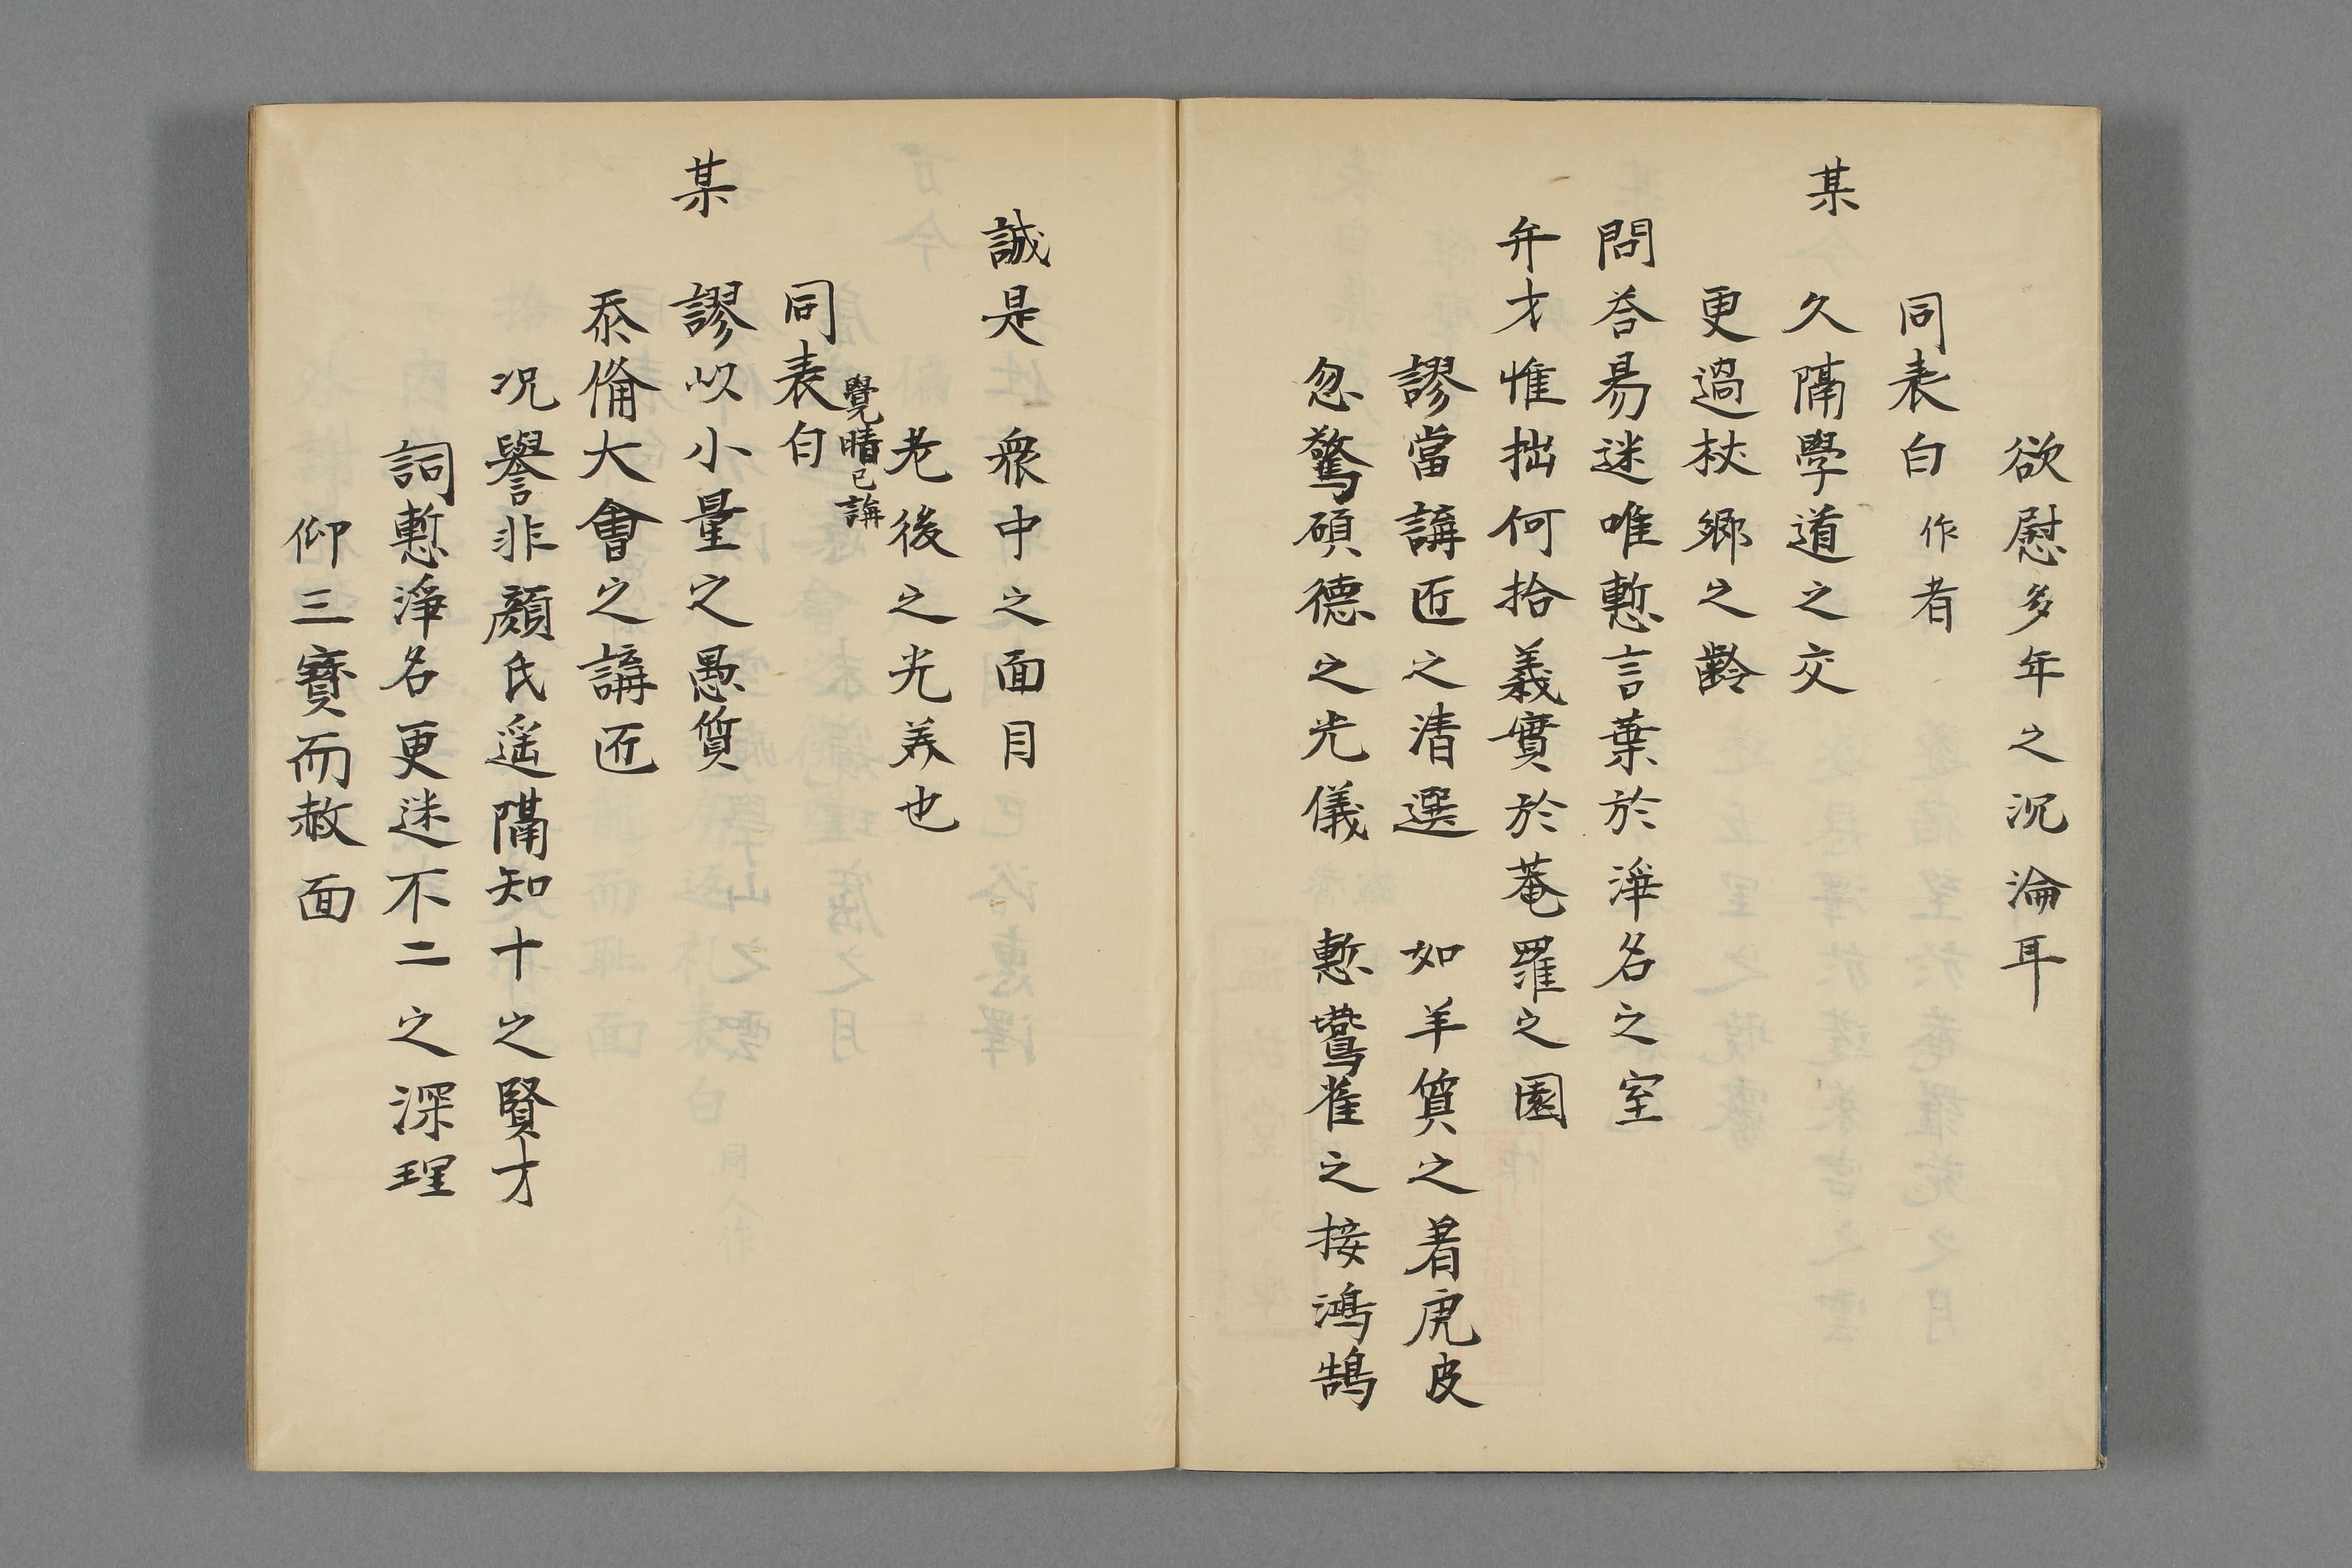 欲慰多年之沉淪耳
同表白 作者
某
久隔學道之交
更過杖郷之齡
問荅易迷唯慙言葉於淨名之室
弁才惟拙何拾義實於菴羅之園
謬當講匠之清選 如羊質之着虎皮
忽驚碩德之光儀 慙鷰雀之接鴻鵠
誠是 衆中之面目
老後之光美也
同表白 覺晴已講
某
謬以小量之愚質
忝俻大會之講匠
况譽非顔氏遥隔知十之賢才
詞慙淨名更迷不二之深理
仰三寶而赦面